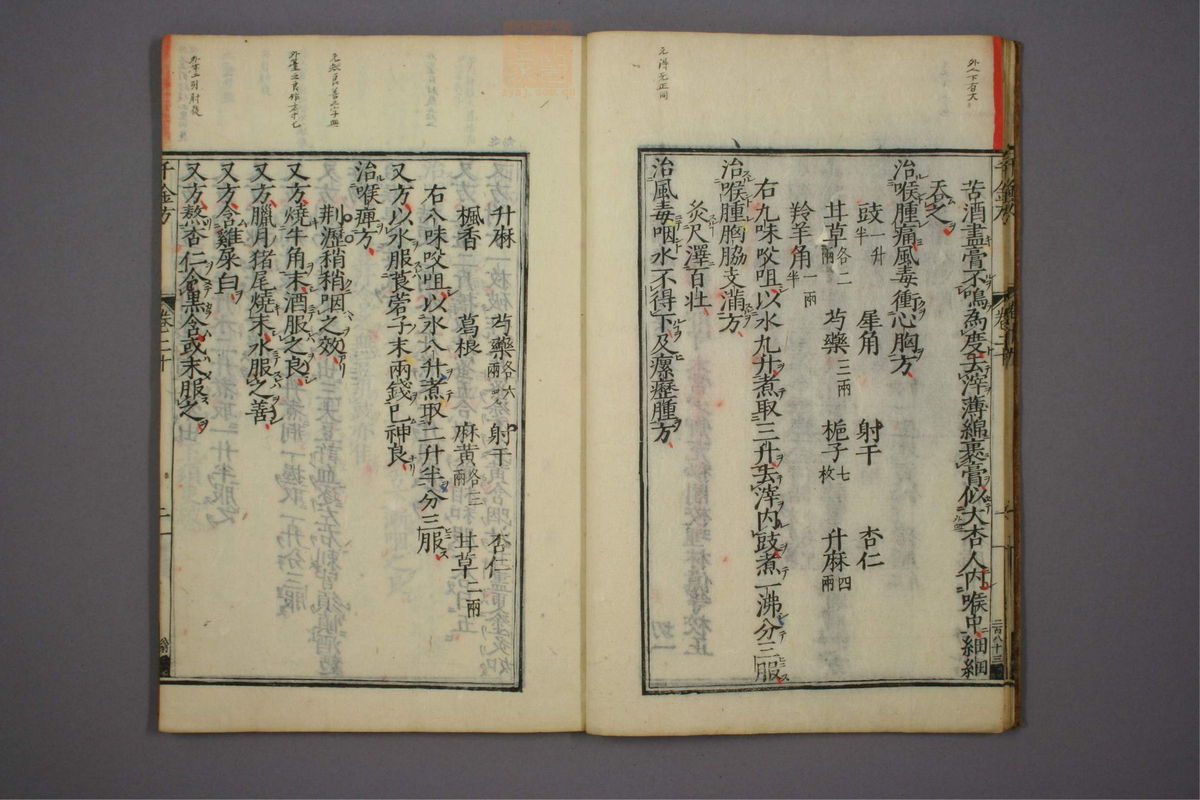 苦酒盡膏不鳴為度去滓薄綿裹膏似大杏人內喉中細細
吞之
治喉腫痛風毒衝心胸方
豉一升半 犀角 射干 杏仁
甘草各二兩 芍藥三兩 梔子七枚 升麻四兩
羚羊角一兩半
右九味㕮咀以水九升煮取三升去滓內豉煮一沸分三服
治喉腫胸脇支滿方
灸尺澤百壯
治風毒咽水不得下及瘰癧腫方
升麻 芍藥各六兩 射干 杏仁
楓香 葛根 麻黃各三兩 甘草二兩
右八味㕮咀以水八升煮取二升半分三服
又方以水服莨菪子末兩錢匕神良
治喉痺方
荆瀝稍稍咽之效
又方燒牛角末酒服之良
又方臘月猪尾燒末水服之善
又方含雞屎白
又方熬杏仁令黑含或末服之
千金方 卷二十